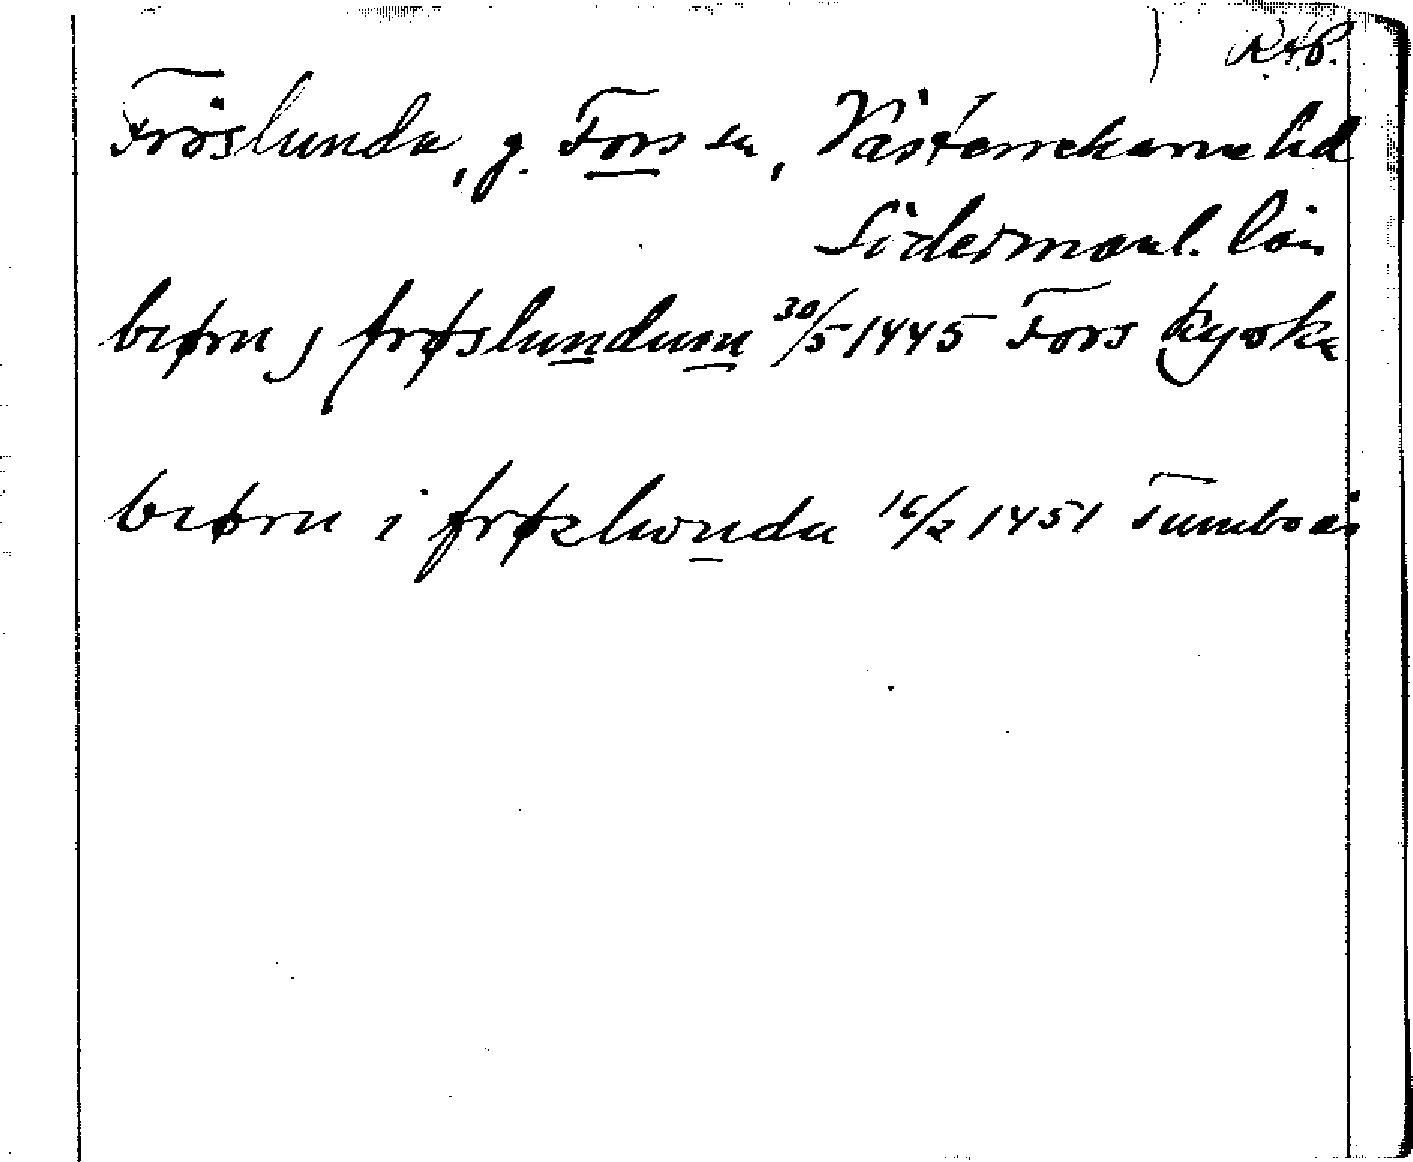 RAP.
Fröslunda, g. Fors sn, Västerrekarne hd
Södermanl. län
biørn j frøslundum 30/5 1445 Fors kyrka
biørn i frøzlwnda 16/2 1451 Tumboås